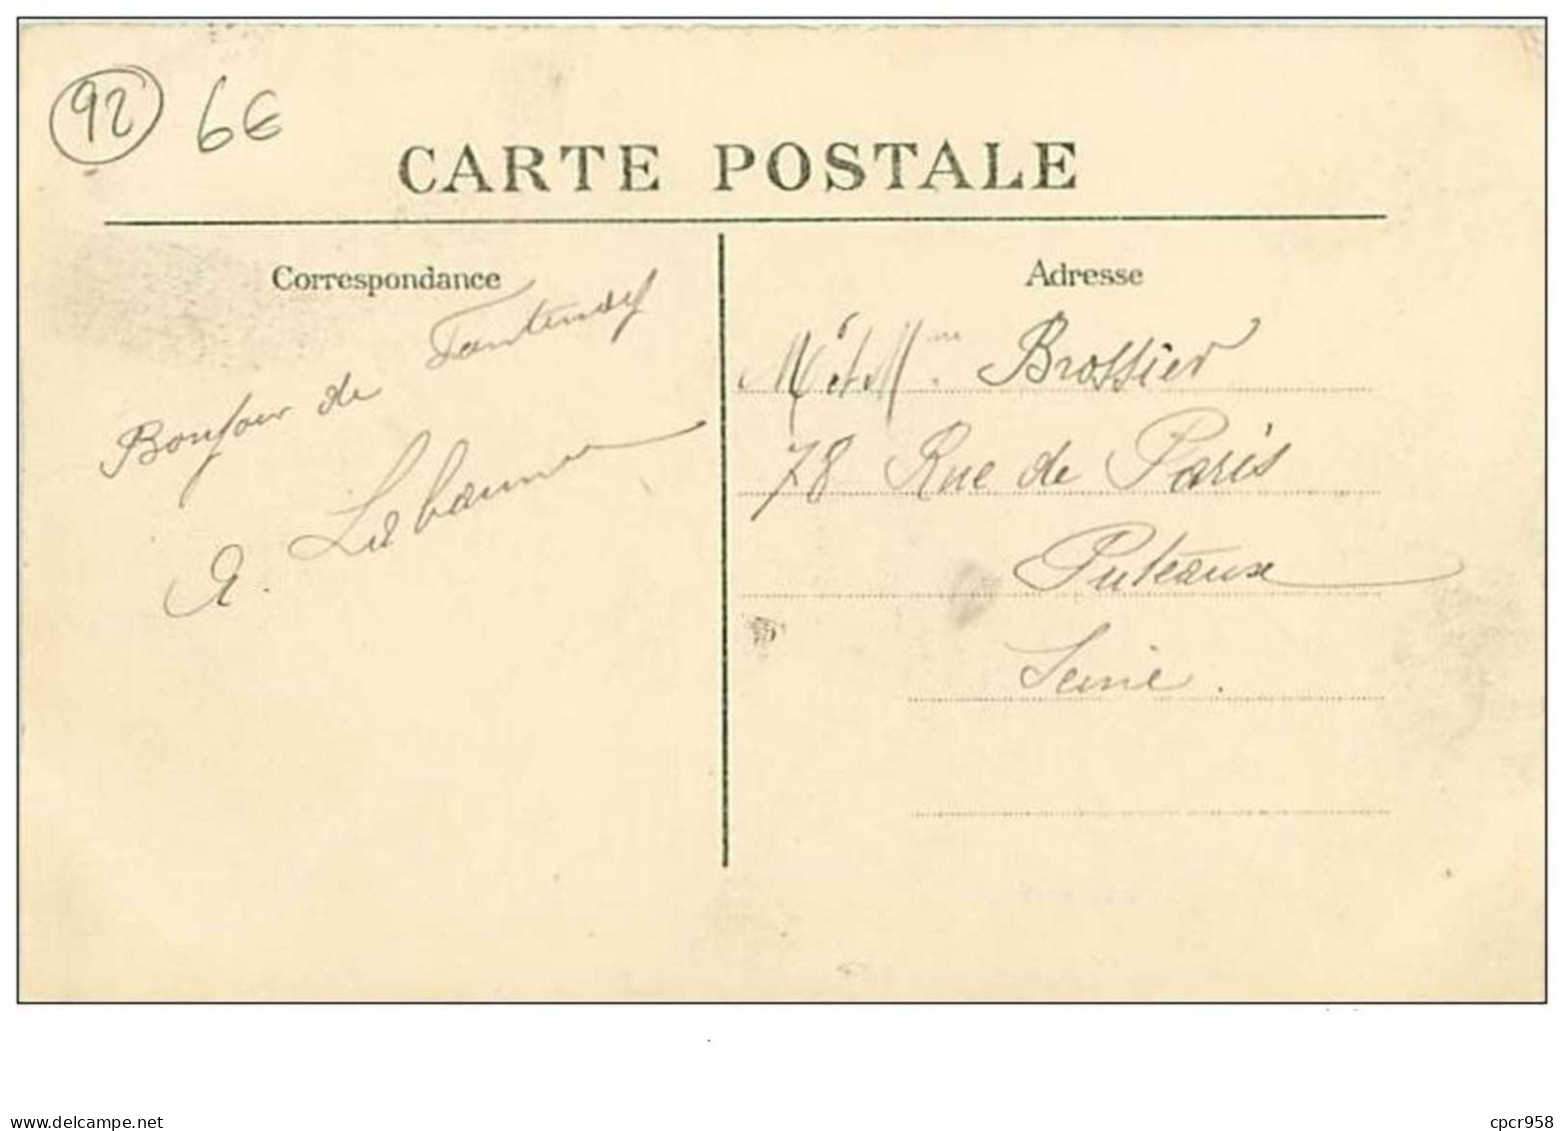 92 6€
CARTE POSTALE
Correspondance
Bonjour de Fontenay
A. Lebanne
Adresse
Mr et Mme Brossier
78 Rue de Paris
Puteaux
Seine.
www.delcampe.net
cpcr958